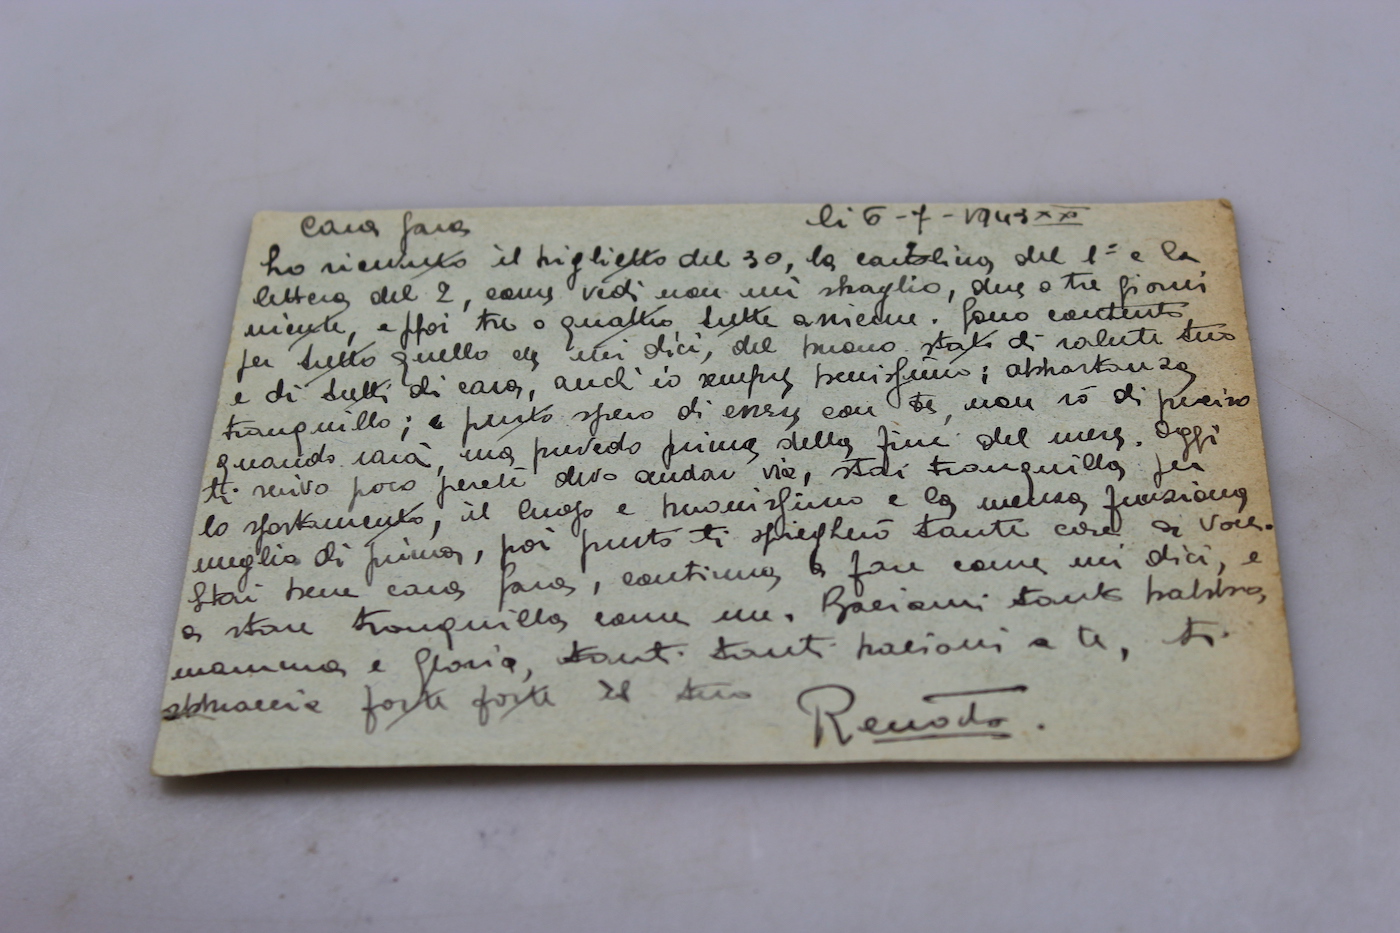 Cara Sara li 6-7-1943 XXI
ho ricevuto il biglietto del 30, la cartolina del 1° e la
lettera del 2, come vedi non mi sbaglio, due o tre giorni
niente, e ppoi tre o quattro tutte assieme. Sono contento
per tutto quello che mi dici, del buono stato di salute tuo
e di tutti di casa, anch'io sempre benissimo; abbastanza
tranquillo; e presto spero di essere con te, non sò di preciso
quando sarà, ma prevedo prima della fine del mese. Oggi
ti scrivo poco perchè devo andar via, stai tranquilla per
lo spostamento, il luogo è buonissimo e la mensa funziona
meglio di prima, poi presto ti spiegherò tante cose a voce.
Stai bene cara Sara, continua a fare come mi dici, e
a stare tranquilla come me. Baciami tanto babbo
mamma e Gloria, tanti tanti bacioni a te, ti
abbraccia forte forte il tuo
Renato.